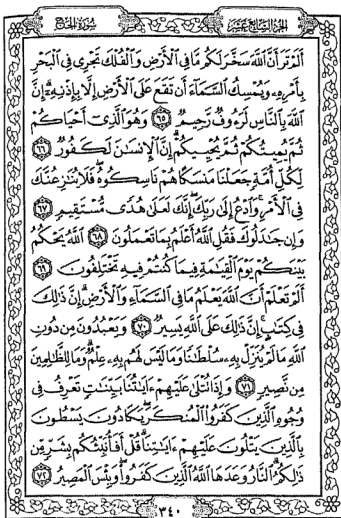 الجزء السابع عشر
سورة الحج
أَلَمْ تَرَ أَنَّ ٱللَّهَ سَخَّرَ لَكُم مَّا فِى ٱلْأَرْضِ وَٱلْفُلْكَ تَجْرِى فِى ٱلْبَحْرِ
بِأَمْرِهِۦ وَيُمْسِكُ ٱلسَّمَآءَ أَن تَقَعَ عَلَى ٱلْأَرْضِ إِلَّا بِإِذْنِهِۦٓ إِنَّ
ٱللَّهَ بِٱلنَّاسِ لَرَءُوفٌ رَّحِيمٌ ٦٥ وَهُوَ ٱلَّذِىٓ أَحْيَاكُمْ
ثُمَّ يُمِيتُكُمْ ثُمَّ يُحْيِيكُمْ إِنَّ ٱلْإِنسَٰنَ لَكَفُورٌ ٦٦
لِّكُلِّ أُمَّةٍ جَعَلْنَا مَنسَكًا هُمْ نَاسِكُوهُ فَلَا يُنَٰزِعُنَّكَ
فِى ٱلْأَمْرِ وَٱدْعُ إِلَىٰ رَبِّكَ إِنَّكَ لَعَلَىٰ هُدًى مُّسْتَقِيمٍ ٦٧
وَإِن جَٰدَلُوكَ فَقُلِ ٱللَّهُ أَعْلَمُ بِمَا تَعْمَلُونَ ٦٨ ٱللَّهُ يَحْكُمُ
بَيْنَكُمْ يَوْمَ ٱلْقِيَٰمَةِ فِيمَا كُنتُمْ فِيهِ تَخْتَلِفُونَ ٦٩
أَلَمْ تَعْلَمْ أَنَّ ٱللَّهَ يَعْلَمُ مَا فِى ٱلسَّمَآءِ وَٱلْأَرْضِ إِنَّ ذَٰلِكَ
فِى كِتَٰبٍ إِنَّ ذَٰلِكَ عَلَى ٱللَّهِ يَسِيرٌ ٧٠ وَيَعْبُدُونَ مِن دُونِ
ٱللَّهِ مَا لَمْ يُنَزِّلْ بِهِۦ سُلْطَٰنًا وَمَا لَيْسَ لَهُم بِهِۦ عِلْمٌ وَمَا لِلظَّٰلِمِينَ
مِن نَّصِيرٍ ٧١ وَإِذَا تُتْلَىٰ عَلَيْهِمْ ءَايَٰتُنَا بَيِّنَٰتٍ تَعْرِفُ فِى
وُجُوهِ ٱلَّذِينَ كَفَرُوا۟ ٱلْمُنكَرَ يَكَادُونَ يَسْطُونَ
بِٱلَّذِينَ يَتْلُونَ عَلَيْهِمْ ءَايَٰتِنَا قُلْ أَفَأُنَبِّئُكُم بِشَرٍّ مِّن
ذَٰلِكُمُ ٱلنَّارُ وَعَدَهَا ٱللَّهُ ٱلَّذِينَ كَفَرُوا۟ وَبِئْسَ ٱلْمَصِيرُ ٧٢
٣٤٠